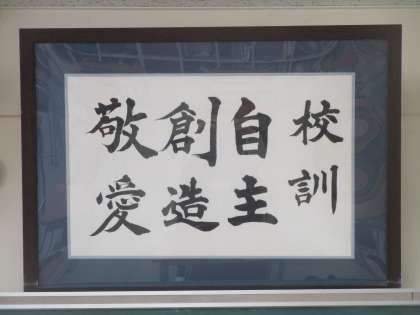 校訓
自主
創造
敬愛